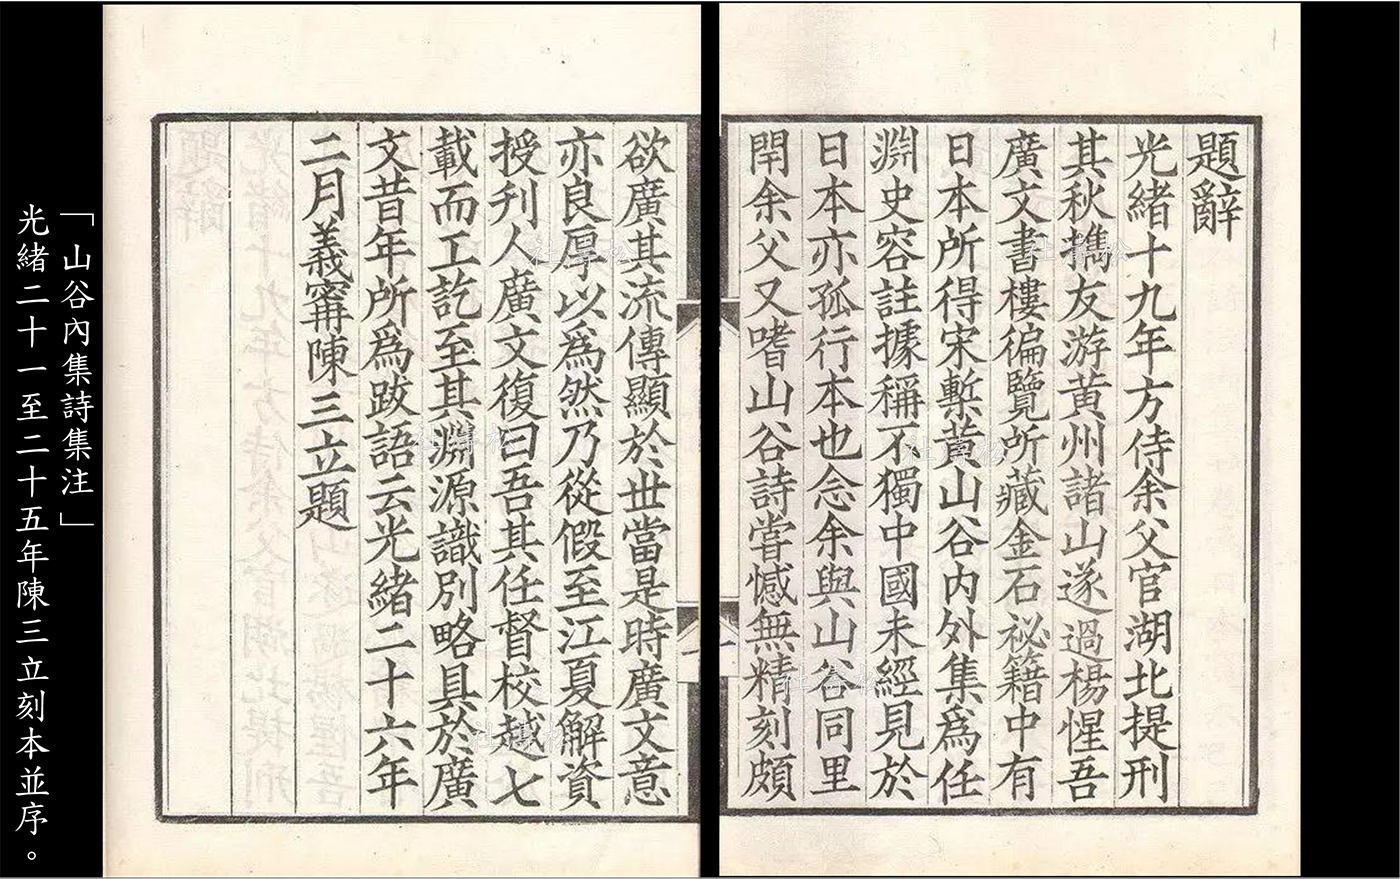 題辭
光緒十九年方侍余父官湖北提刑
其秋攜友游黃州諸山遂過楊惺吾
廣文書樓徧覽所藏金石祕籍中有
日本所得宋槧黃山谷內外集爲任
淵史容註據稱不獨中國未經見於
日本亦孤行本也念余與山谷同里
閈余父又嗜山谷詩嘗憾無精刻頗
欲廣其流傳顯於世當是時廣文意
亦良厚以爲然乃從假至江夏解資
授刊人廣文復曰吾其任督校越七
載而工訖至其淵源識別略具於廣
文昔年所爲跋語云光緒二十六年
二月義甯陳三立題
「山谷內集詩集注」
光緒二十一至二十五年陳三立刻本並序。